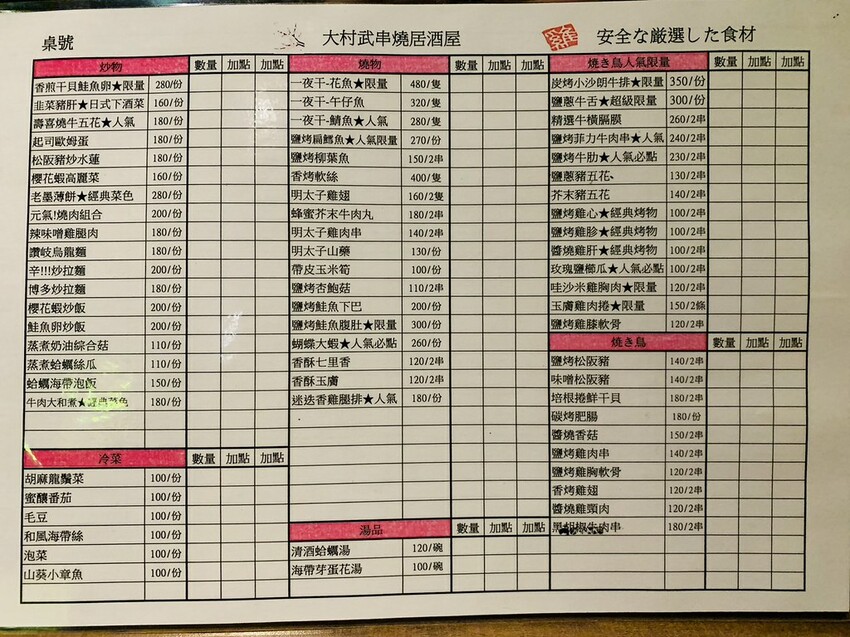 桌號
大村武串燒居酒屋
安全な厳選した食材
炒物 數量 加點 加點
香煎干貝鮭魚卵★限量 280/份
韭菜豬肝★日式下酒菜 160/份
壽喜燒牛五花★人氣 180/份
起司歐姆蛋 180/份
松阪豬炒水蓮 180/份
櫻花蝦高麗菜 160/份
老墨薄餅★經典菜色 280/份
元氣!燒肉組合 200/份
辣味噌雞腿肉 180/份
讚岐烏龍麵 180/份
辛!!!炒拉麵 200/份
博多炒拉麵 180/份
櫻花蝦炒飯 200/份
鮭魚卵炒飯 200/份
蒸煮奶油綜合菇 110/份
蒸煮蛤蠣絲瓜 110/份
蛤蠣海帶泡飯 150/份
牛肉大和煮★經典菜色 180/份
冷菜 數量 加點 加點
胡麻龍鬚菜 100/份
蜜釀番茄 100/份
毛豆 100/份
和風海帶絲 100/份
泡菜 100/份
山葵小章魚 100/份
燒物 數量 加點 加點
一夜干-花魚★限量 480/隻
一夜干-午仔魚 320/隻
一夜干-鯖魚★人氣 280/隻
鹽烤扁鱈魚★人氣限量 270/份
鹽烤柳葉魚 150/2串
香烤軟絲 400/隻
明太子雞翅 160/2隻
蜂蜜芥末牛肉丸 180/2串
明太子雞肉串 140/2串
明太子山藥 130/份
帶皮玉米筍 100/份
鹽烤杏鮑菇 110/2串
鹽烤鮭魚下巴 200/份
鹽烤鮭魚腹肚★限量 300/份
蝴蝶大蝦★人氣必點 260/份
香酥七里香 120/2串
香酥玉膚 120/2串
迷迭香雞腿排★人氣 180/份
湯品 數量 加點 加點
清酒蛤蠣湯 120/碗
海帶芽蛋花湯 100/碗
焼き鳥人氣限量 數量 加點 加點
炭烤小沙朗牛排★限量 350/份
鹽蔥牛舌★超級限量 300/份
精選牛橫膈膜 260/2串
鹽烤菲力牛肉串★人氣 240/2串
鹽烤牛肋★人氣必點 230/2串
鹽蔥豬五花 130/2串
芥末豬五花 140/2串
鹽烤雞心★經典烤物 100/2串
鹽烤雞胗★經典烤物 100/2串
醬燒雞肝★經典烤物 100/2串
玫瑰鹽櫛瓜★人氣必點 100/2串
哇沙米雞胸肉★限量 120/2串
玉膚雞肉捲★限量 150/2條
鹽烤雞膝軟骨 120/2串
焼き鳥 數量 加點 加點
鹽烤松阪豬 140/2串
味噌松阪豬 140/2串
培根捲鮮干貝 180/2串
碳烤肥腸 180/份
醬燒香菇 150/2串
鹽烤雞肉串 140/2串
鹽烤雞胸軟骨 120/2串
香烤雞翅 120/2串
醬燒雞頸肉 120/2串
黑胡椒牛肉串 180/2串